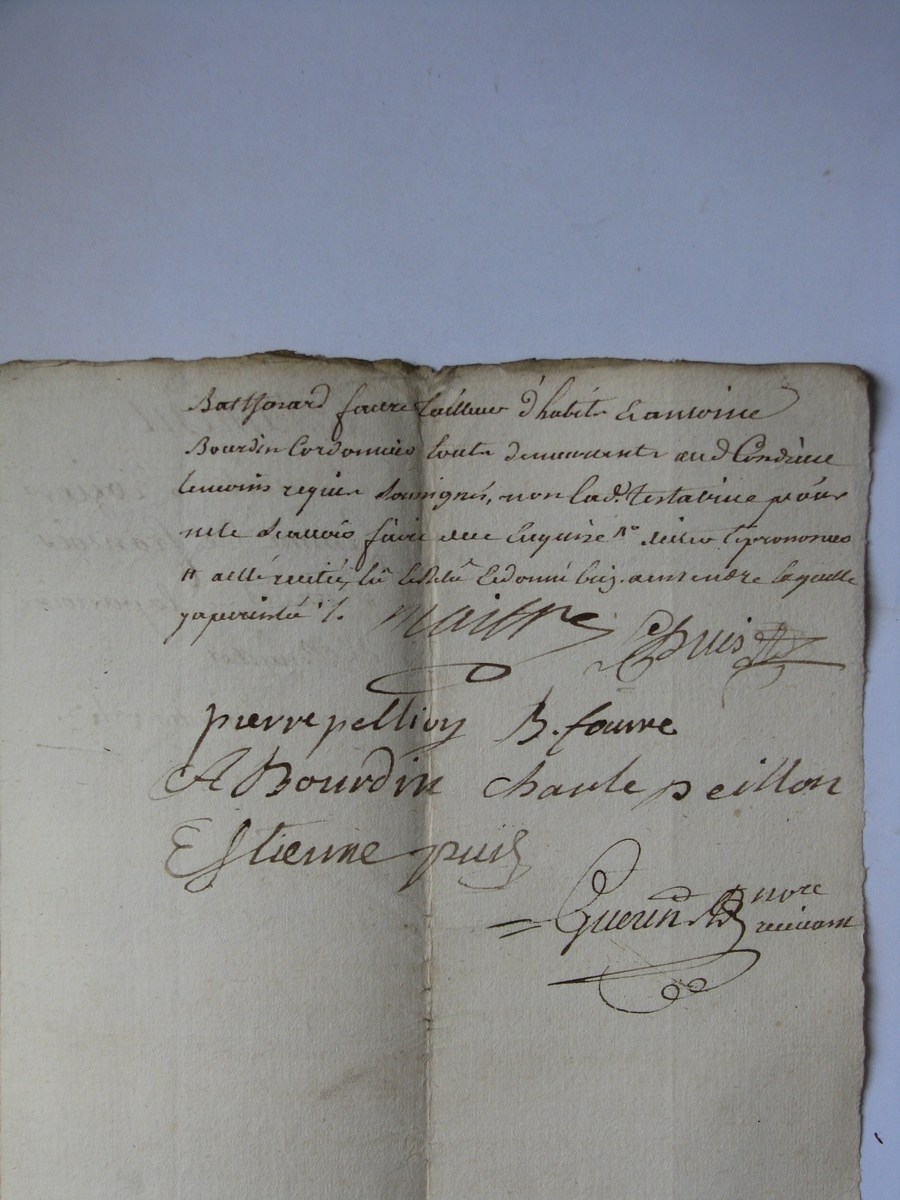 Balthasard faure tailleur d'habits & antoine
Bourdin Cordonnier touts demeurants aud Condrieu
temoins requis soussignés, non lad. testatrice pour
ne le scavoir faire de ce enquise
a esté lû & donné a entendre laquelle
y a persisté /.
maistre Puis
pierre pellion B. faure
A Bourdin charle peillon
Estienne puis
Guerin nore
recevant